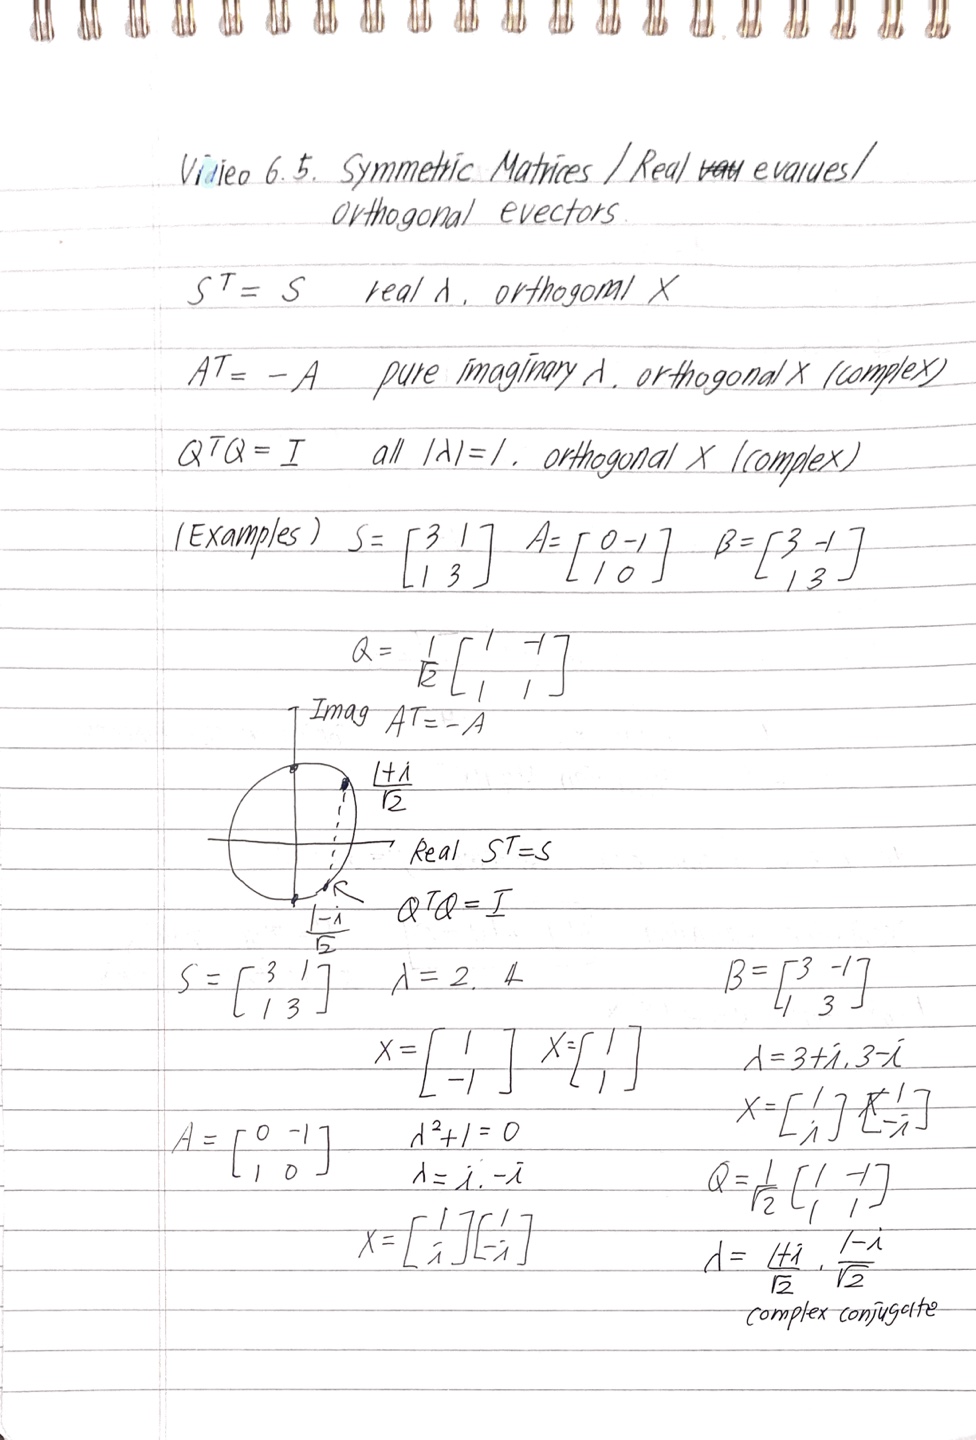 Vidieo 6.5. Symmetric Matrices / Real evalues /
orthogonal evectors.
Sᵀ = S real λ. orthogonal X
Aᵀ = -A pure imaginary λ. orthogonal X (complex)
QᵀQ = I all |λ|=1. orthogonal X (complex)
(Examples) S = [3 1 A = [0 -1 B = [3 -1
1 3] 1 0] 1 3]
Q = 1/√2 [1 -1
1 1]
Imag Aᵀ = -A
1+i/√2
Real Sᵀ=S
QᵀQ = I
1-i/√2
S = [3 1 λ = 2. 4
1 3]
X = [1 X = [1
-1] 1]
A = [0 -1 λ²+1=0
1 0] λ = i. -i
X = [1 [1
i] -i]
B = [3 -1
1 3]
λ = 3+i. 3-i
X = [1 [1
i] -i]
Q = 1/√2 [1 -1
1 1]
λ = 1+i/√2 . 1-i/√2
complex conjugate